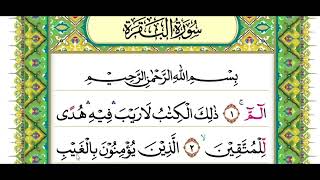 سُوْرَةُ الْبَقَرَةِ
بِسْمِ اللّٰهِ الرَّحْمٰنِ الرَّحِيْمِ
الٓمّٓ ۚ ﴿١﴾ ذٰلِكَ الْكِتٰبُ لَا رَيْبَ ۛ فِيْهِ ۛ هُدًى
لِّلْمُتَّقِيْنَ ۙ ﴿٢﴾ الَّذِيْنَ يُؤْمِنُوْنَ بِالْغَيْبِ